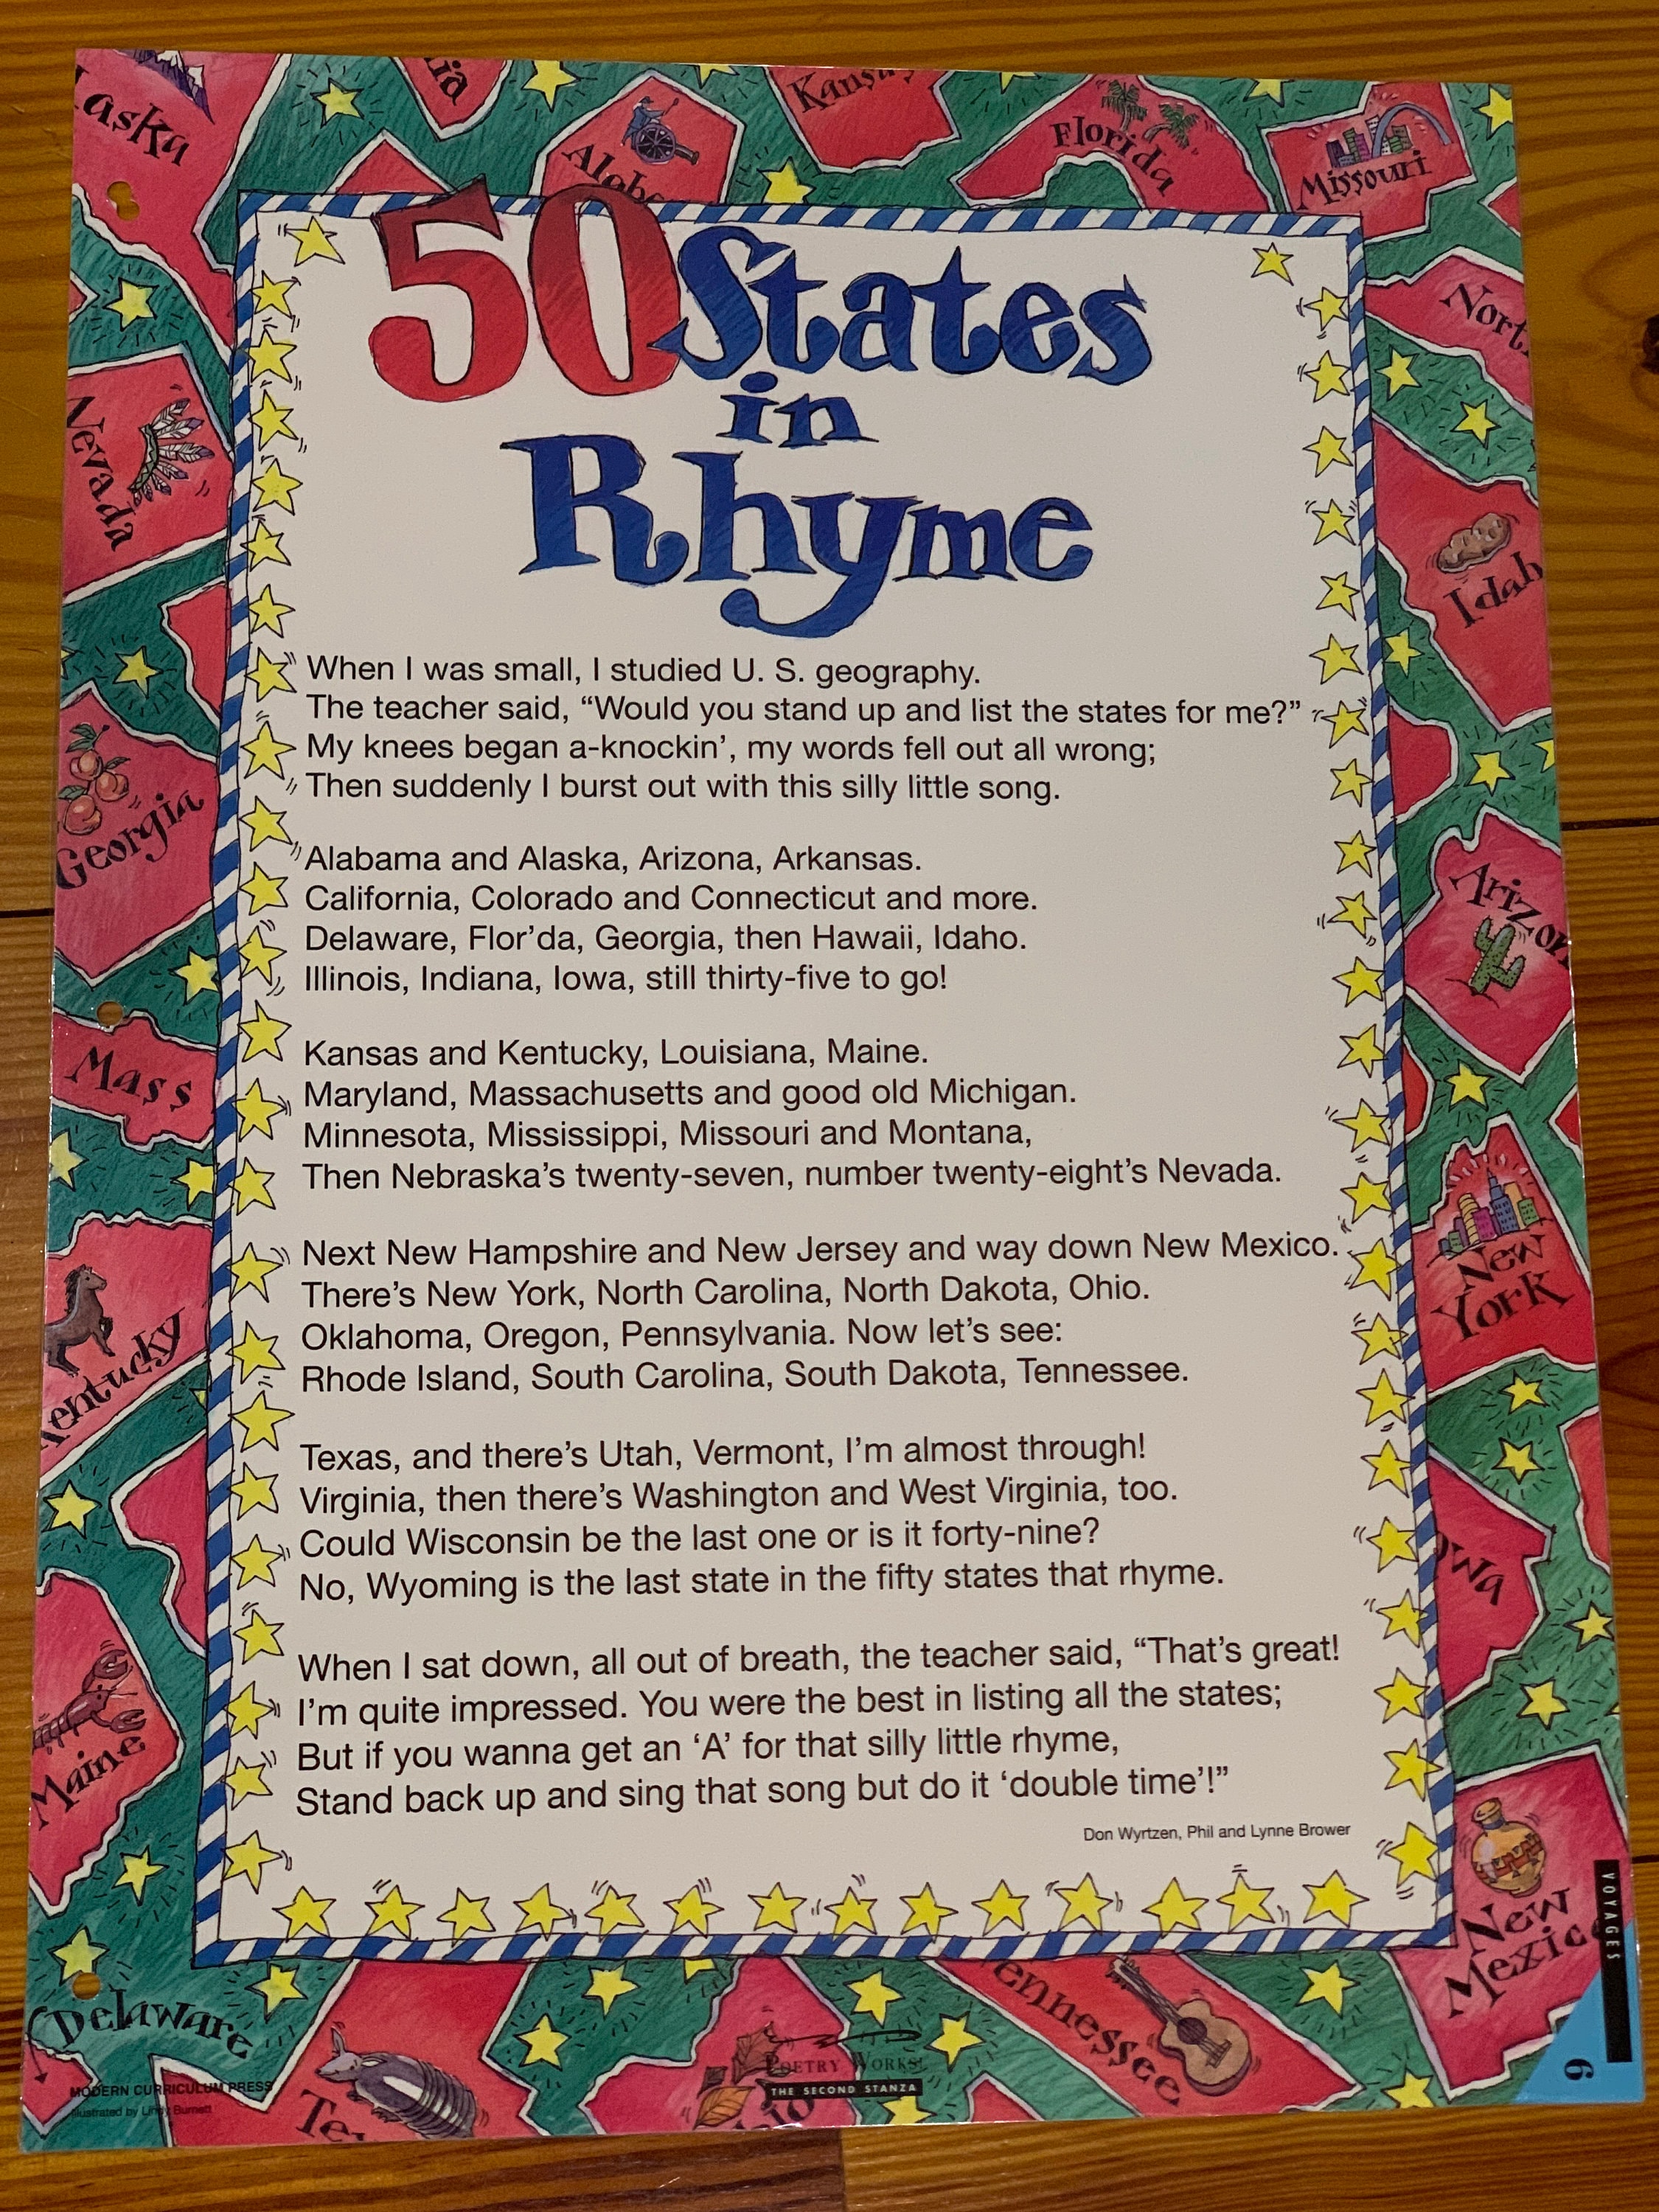 aska
ia
Kansas
Florida
Missouri
50 States
in
Rhyme
Nort
Nevada
Idah
Georgia
Arizon
Mass
New
York
entucky
owa
Maine
New
Mexico
Delaware
ennessee
Te
When I was small, I studied U. S. geography.
The teacher said, “Would you stand up and list the states for me?”
My knees began a-knockin’, my words fell out all wrong;
Then suddenly I burst out with this silly little song.
Alabama and Alaska, Arizona, Arkansas.
California, Colorado and Connecticut and more.
Delaware, Flor’da, Georgia, then Hawaii, Idaho.
Illinois, Indiana, Iowa, still thirty-five to go!
Kansas and Kentucky, Louisiana, Maine.
Maryland, Massachusetts and good old Michigan.
Minnesota, Mississippi, Missouri and Montana,
Then Nebraska’s twenty-seven, number twenty-eight’s Nevada.
Next New Hampshire and New Jersey and way down New Mexico.
There’s New York, North Carolina, North Dakota, Ohio.
Oklahoma, Oregon, Pennsylvania. Now let’s see:
Rhode Island, South Carolina, South Dakota, Tennessee.
Texas, and there’s Utah, Vermont, I’m almost through!
Virginia, then there’s Washington and West Virginia, too.
Could Wisconsin be the last one or is it forty-nine?
No, Wyoming is the last state in the fifty states that rhyme.
When I sat down, all out of breath, the teacher said, “That’s great!
I’m quite impressed. You were the best in listing all the states;
But if you wanna get an ‘A’ for that silly little rhyme,
Stand back up and sing that song but do it ‘double time’!”
Don Wyrtzen, Phil and Lynne Brower
VOYAGES
6
POETRY WORKS!
THE SECOND STANZA
MODERN CURRICULUM PRESS
Illustrated by Lindy Burnett